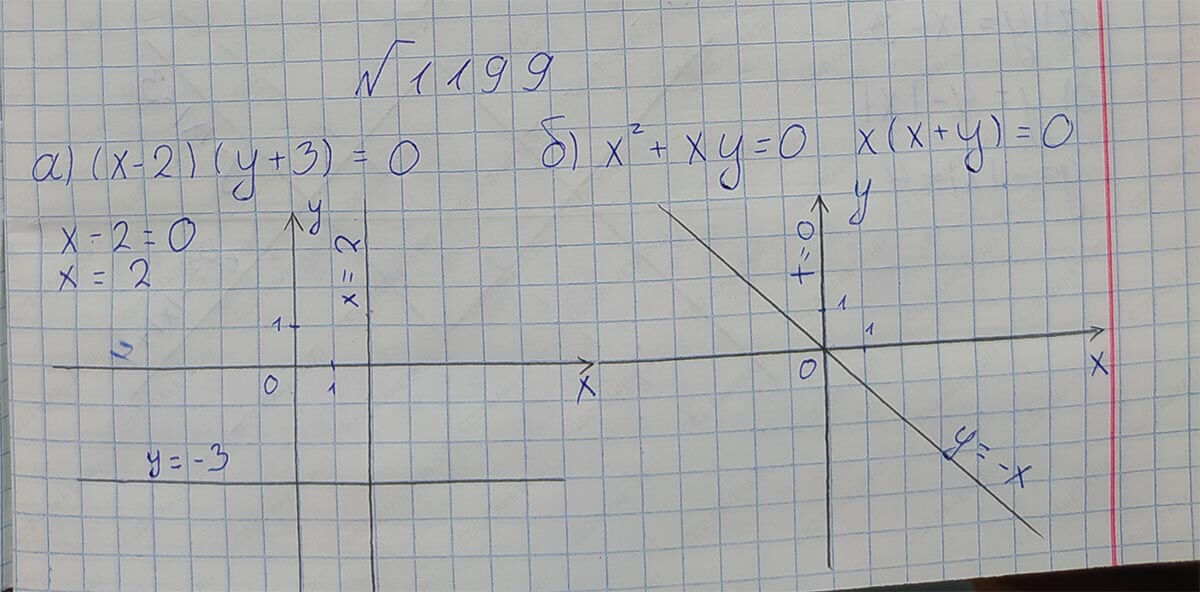 √1199
а) (x-2)(y+3) = 0
x - 2 = 0
x = 2
y
x = 2
1
0
1
x
y = -3
б) x² + xy = 0 x(x+y) = 0
y
x = 0
1
1
0
x
y = -x